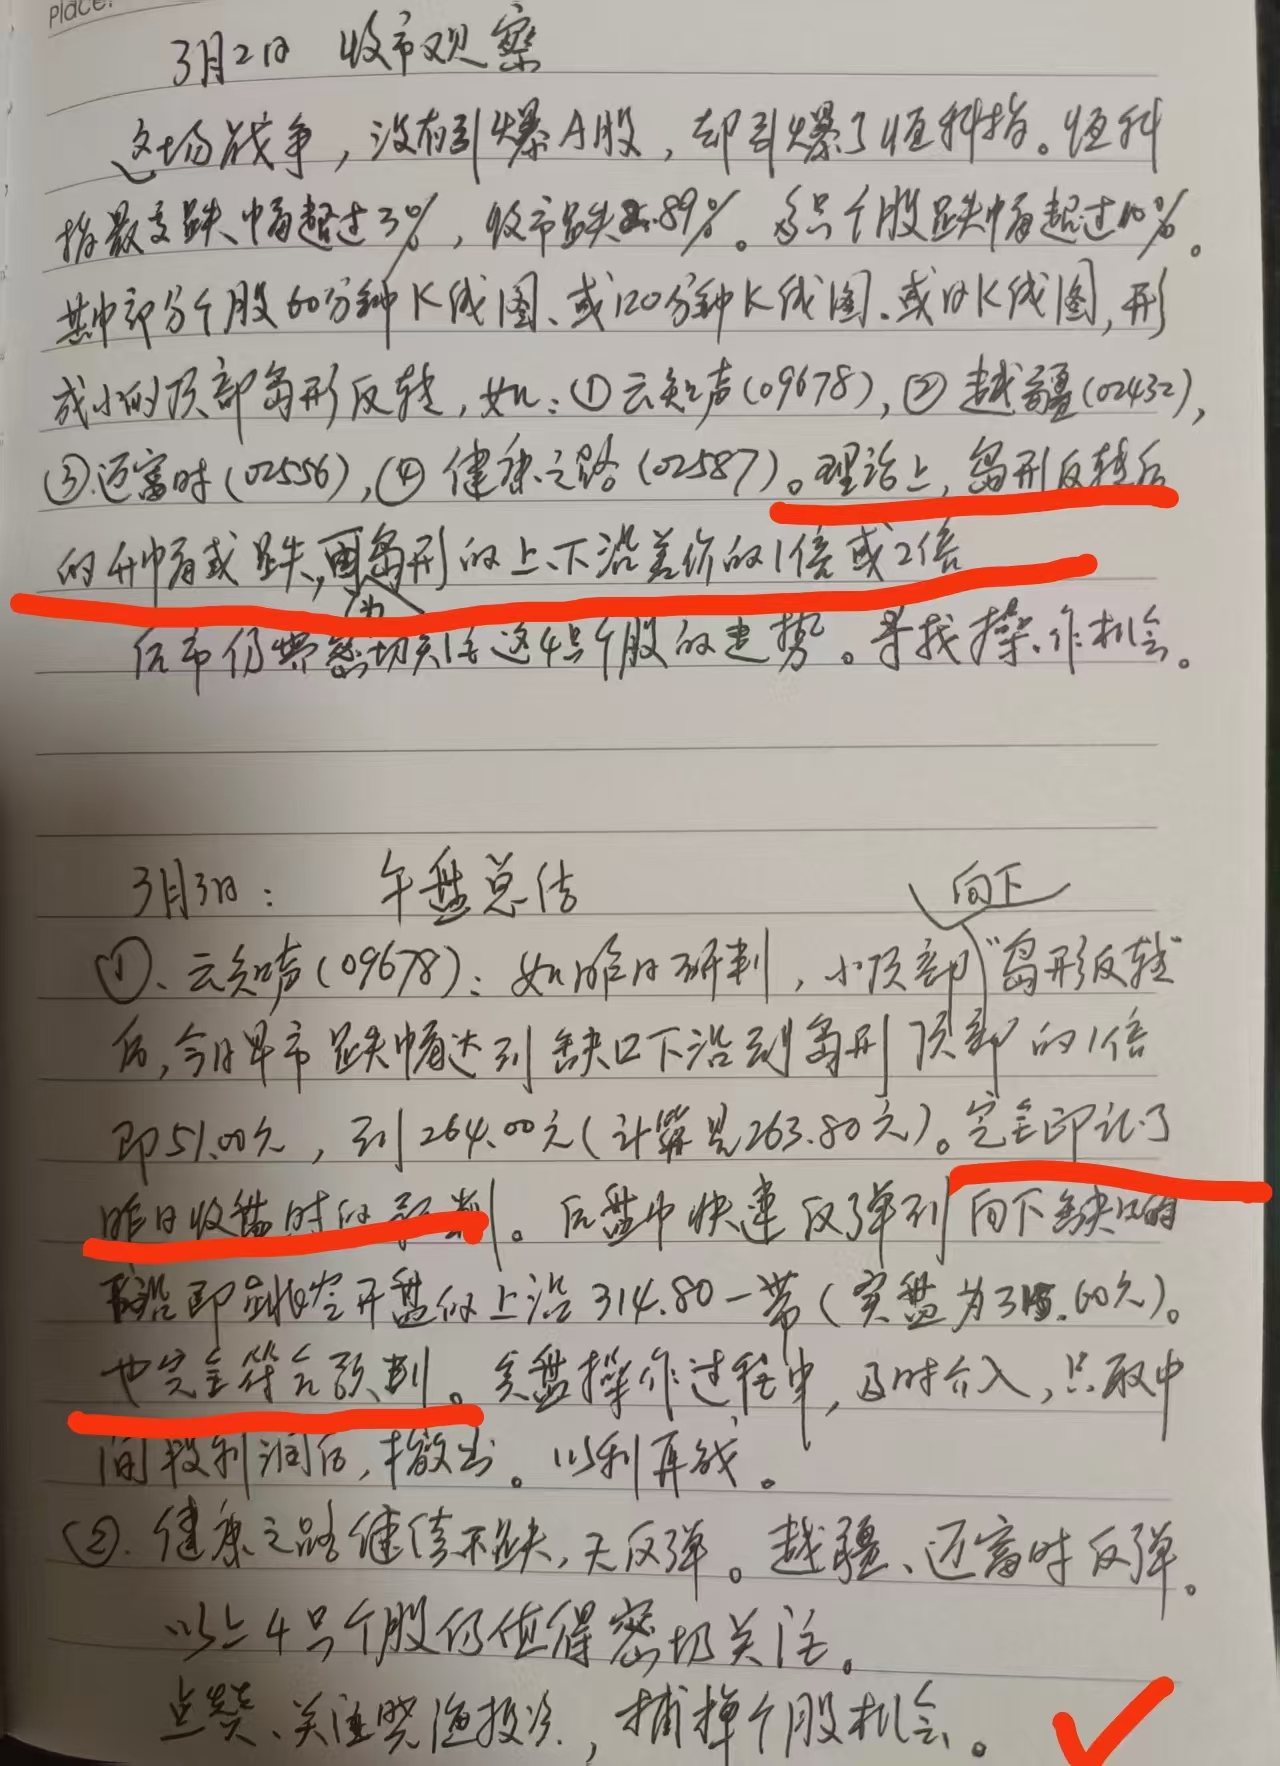 Place:
3月2日 收市观察
这场战争,没有引爆A股,却引爆了恒科指。恒科
指最多跌幅超过3%,收市跌2.89%。多只个股跌幅超过10%。
其中部分个股60分钟K线图、或120分钟K线图、或日K线图,形
成小的顶部岛形反转,如:①云知声(09678),②越疆(02432),
③迈富时(02556),④健康之路(02587)。理论上,岛形反转后
的升幅或跌,为岛形的上、下沿差价的1倍或2倍
后市仍需密切关注这4只个股的走势。寻找操作机会。
3月3日: 午盘总结
向下
①、云知声(09678):如昨日研判,小顶部"岛形反转"
后,今日早市跌幅达到缺口下沿到岛形顶部的1倍
即51.00元,到264.00元(计算是263.80元)。完全印证了
昨日收盘时的预判。后盘中快速反弹到向下缺口的
即跳空开盘的上沿314.80一带(实盘为315.60元)。
也完全符合预判。实盘操作过程中,及时介入,只取中
间段利润后,撤出。以利再战。
②.健康之路继续下跌,无反弹。越疆、迈富时反弹。
以上4只个股仍值得密切关注。
点赞、关注投资,捕捉个股机会。